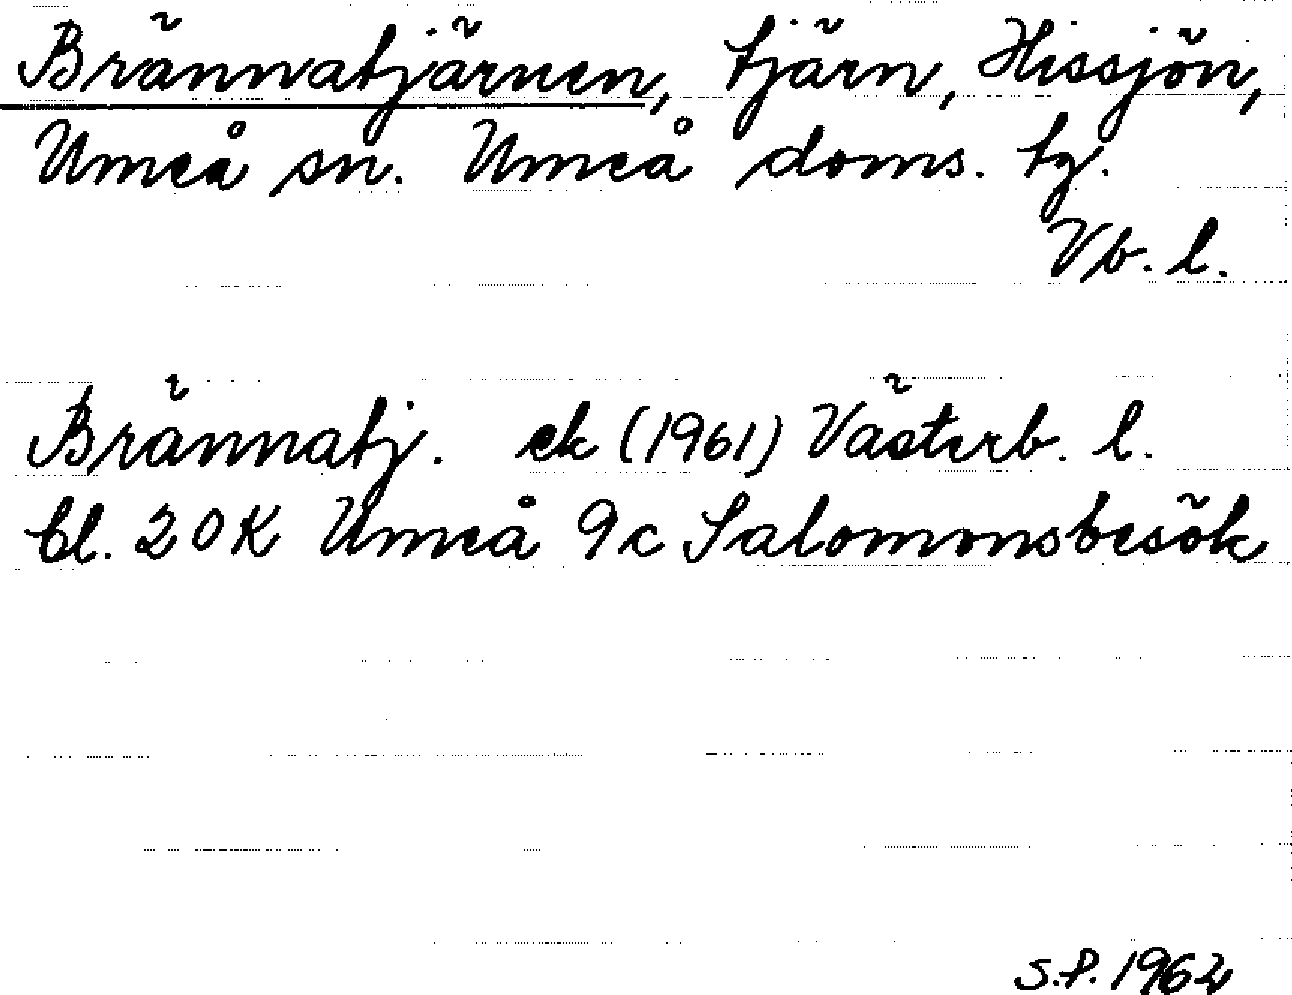 Brännatjärnen, tjärn, Hissjön,
Umeå sn. Umeå doms. tg.
Vb. l.
Brännatj. ek (1961) Västerb. l.
bl. 20K Umeå 9c Salomonsbesök
S.P. 1962